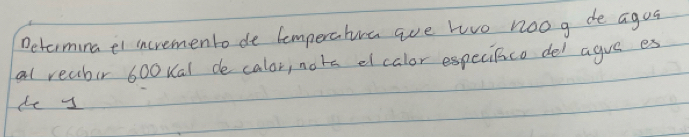 Determina el incremento de temperatura que tuvo 1200 g de agua
al recibir 600 Kal de calor, nota el calor especifico del agua es
de 1